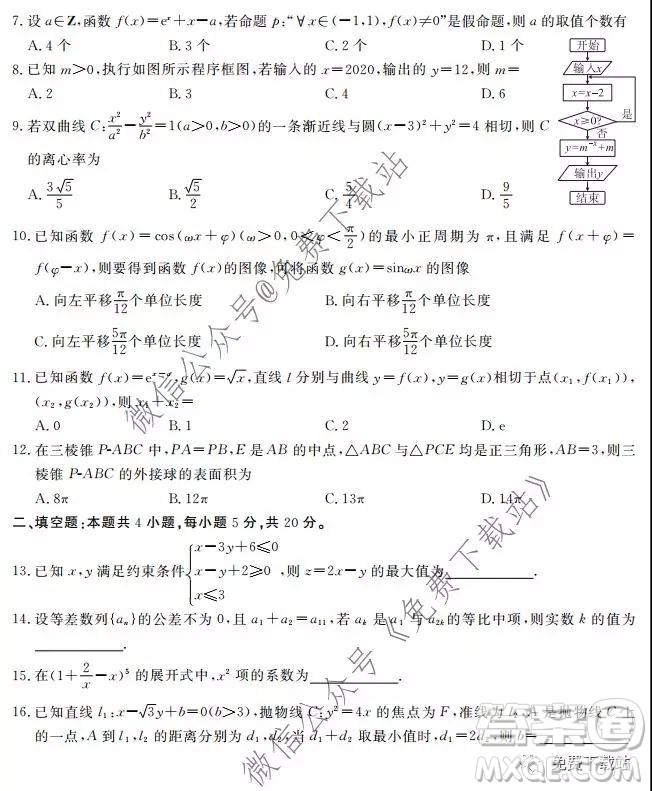 7. 设 a∈Z,函数 f(x)=eˣ+x−a,若命题 p:“∀x∈(−1,1),f(x)≠0”是假命题,则 a 的取值个数有
A. 4 个 B. 3 个 C. 2 个 D. 1 个
8. 已知 m>0,执行如图所示程序框图,若输入的 x=2020,输出的 y=12,则 m=
A. 2 B. 3 C. 4 D. 6
开始
输入x
x=x−2
x≥0?
是
否
y=m⁻ˣ+m
输出y
结束
9. 若双曲线 C:x²/a²−y²/b²=1(a>0,b>0)的一条渐近线与圆(x−3)²+y²=4 相切,则 C
的离心率为
A. 3√5/5 B. √5/2 C. 5/4 D. 9/5
10. 已知函数 f(x)=cos(ωx+φ)(ω>0,0≤φ<π/2)的最小正周期为 π,且满足 f(x+φ)=
f(φ−x),则要得到函数 f(x)的图像,可将函数 g(x)=sinωx 的图像
A. 向左平移 π/12 个单位长度 B. 向右平移 π/12 个单位长度
C. 向左平移 5π/12 个单位长度 D. 向右平移 5π/12 个单位长度
11. 已知函数 f(x)=e ,g(x)=√x,直线 l 分别与曲线 y=f(x),y=g(x)相切于点(x₁,f(x₁)),
(x₂,g(x₂)),则 x₁+x₂=
A. 0 B. 1 C. 2 D. e
12. 在三棱锥 P-ABC 中,PA=PB,E 是 AB 的中点,△ABC 与△PCE 均是正三角形,AB=3,则三
棱锥 P-ABC 的外接球的表面积为
A. 8π B. 12π C. 13π D. 14π
二、填空题:本题共 4 小题,每小题 5 分,共 20 分。
13. 已知 x,y 满足约束条件{x−3y+6≤0 x−y+2≥0 x≤3 ,则 z=2x−y 的最大值为________.
14. 设等差数列{aₙ}的公差不为 0,且 a₁+a₂=a₁₁,若 aₖ 是 a₁ 与 a₂ₖ 的等比中项,则实数 k 的值为
________.
15. 在(1+2/x−x)⁵ 的展开式中,x² 项的系数为________.
16. 已知直线 l₁:x−√3y+b=0(b>3),抛物线 C:y²=4x 的焦点为 F,准线为 l₂,A 是抛物线 C 上
的一点,A 到 l₁,l₂ 的距离分别为 d₁,d₂,当 d₁+d₂ 取最小值时,d₁=2d₂,则 b=________
微信公众号@免费下载站
微信公众号《免费下载站》
答案圈
MXQE.COM
免费下载站